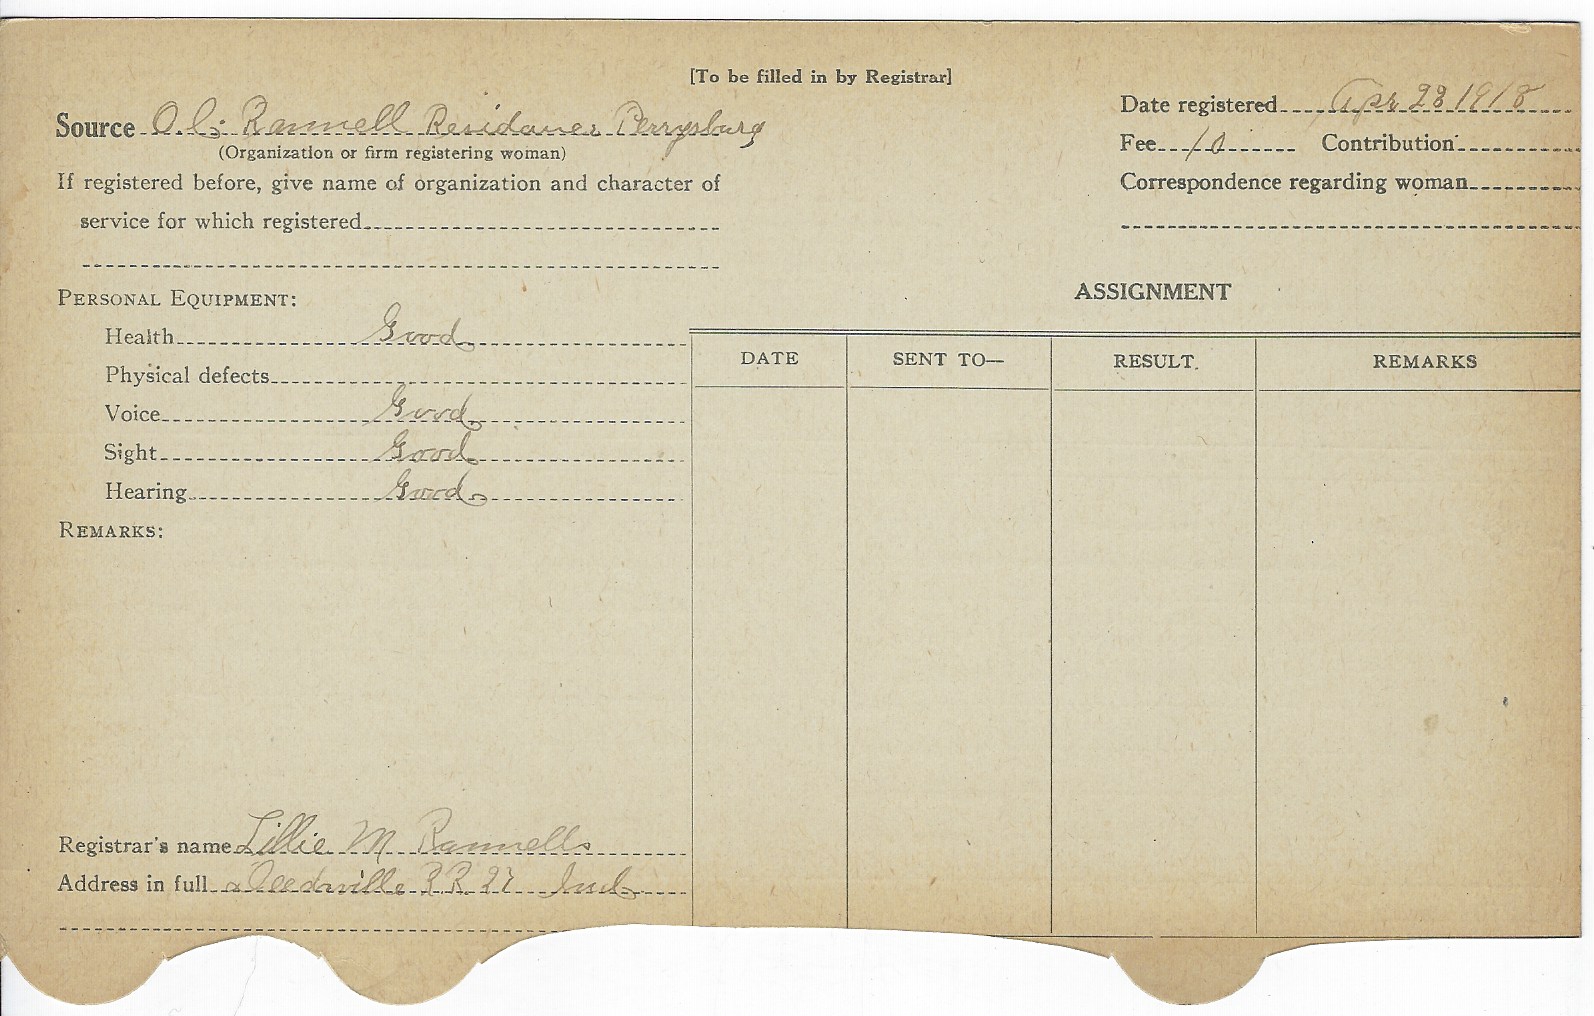 [To be filled in by Registrar]
Source O. C. Rannell Residance Perrysburg
(Organization or firm registering woman)
If registered before, give name of organization and character of
service for which registered
Date registered Apr 28 1918
Fee 10 Contribution
Correspondence regarding woman
PERSONAL EQUIPMENT:
Health Good
Physical defects
Voice Good
Sight Good
Hearing Good
REMARKS:
Registrar's name Lillie M Rannells
Address in full Deedsville R R 27 Ind
ASSIGNMENT
DATE SENT TO— RESULT. REMARKS